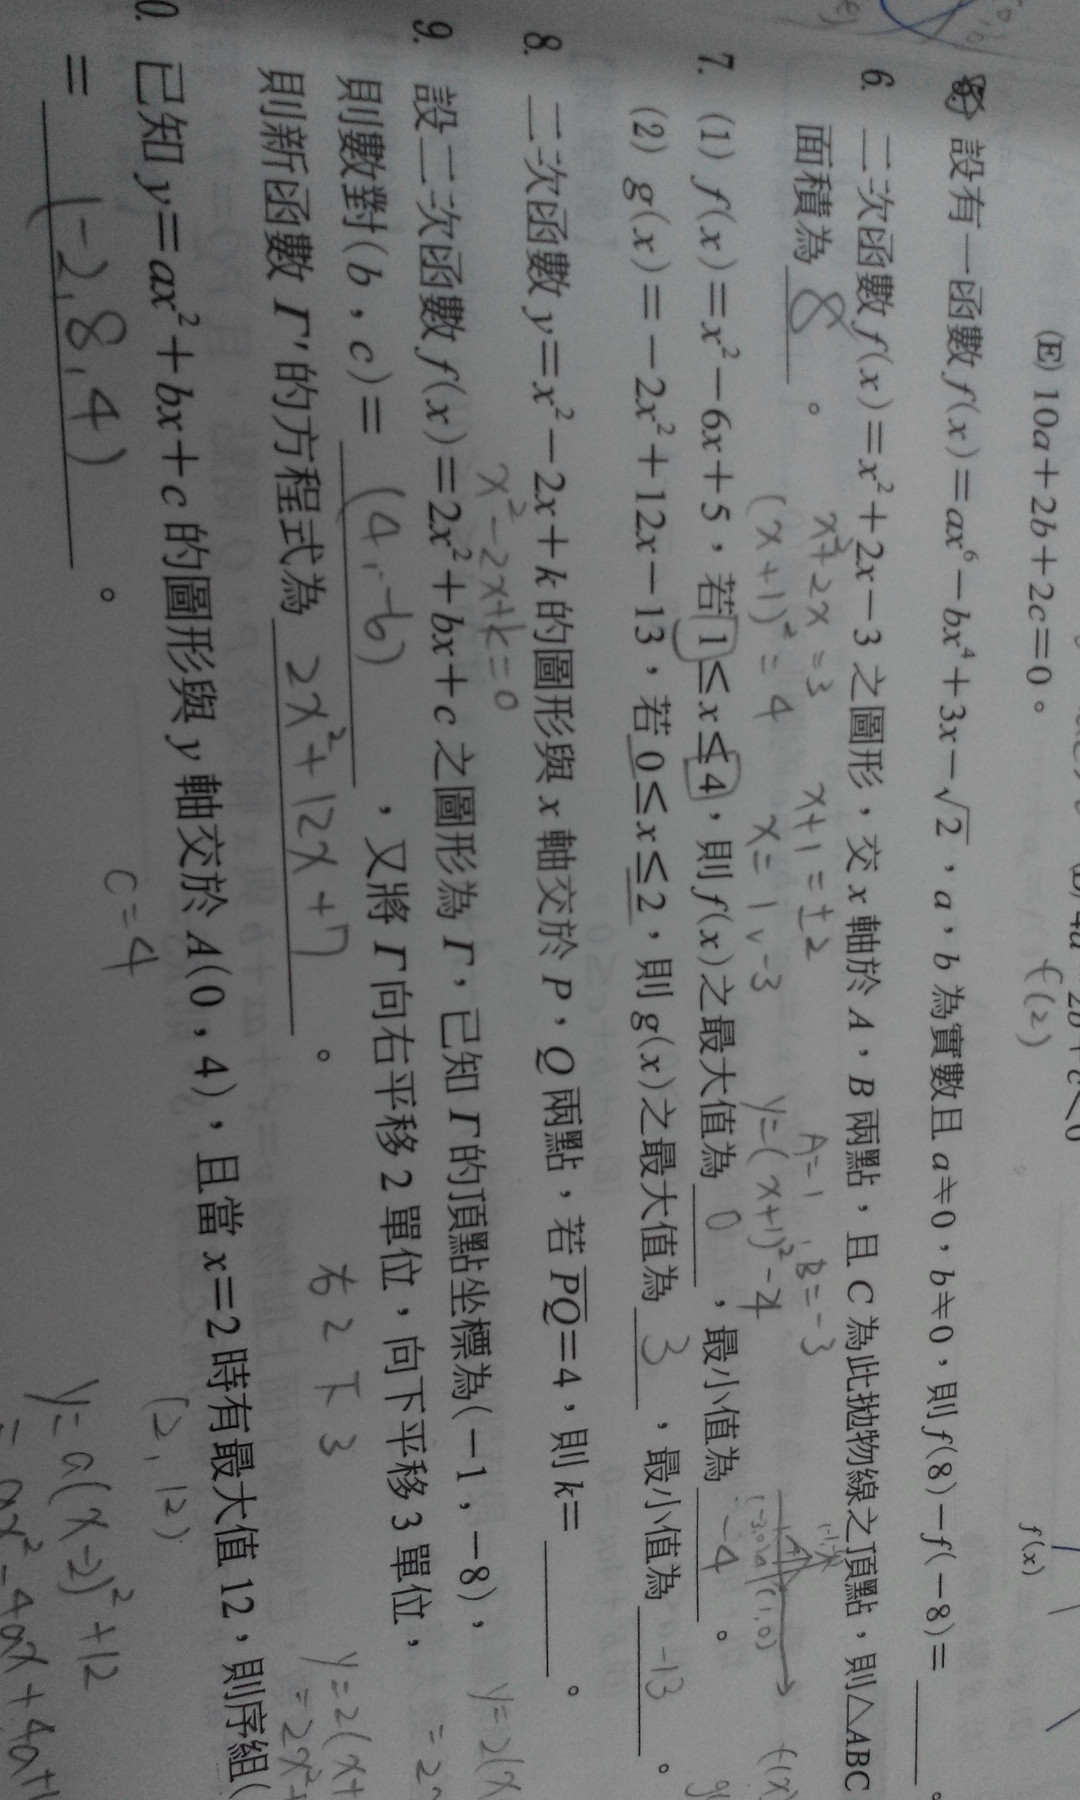 (E) 10a+2b+2c=0。
f(2)
f(x)
設有一函數 f(x)=ax⁶-bx⁴+3x-√2,a,b 為實數且 a≠0,b≠0,則 f(8)-f(-8)=______。
6. 二次函數 f(x)=x²+2x-3 之圖形,交 x 軸於 A,B 兩點,且 C 為此拋物線之頂點,則△ABC
面積為 8 。
x²+2x=3 x+1=±2 A=1, B=-3
(x+1)²=4 x=1、-3 y=(x+1)²-4
(-3,0) (1,0)
7. (1) f(x)=x²-6x+5,若 1≤x≤4,則 f(x) 之最大值為 0 ,最小值為 -4 。
(2) g(x)=-2x²+12x-13,若 0≤x≤2,則 g(x) 之最大值為 3 ,最小值為 -13 。
8. 二次函數 y=x²-2x+k 的圖形與 x 軸交於 P,Q 兩點,若 PQ=4,則 k=______。
x²-2x+k=0
9. 設二次函數 f(x)=2x²+bx+c 之圖形為 Γ,已知 Γ 的頂點坐標為(-1,-8),
則數對(b,c)= (4,-6) ,又將 Γ 向右平移 2 單位,向下平移 3 單位,
右2下3
則新函數 Γ' 的方程式為 2x²+12x+7 。
0. 已知 y=ax²+bx+c 的圖形與 y 軸交於 A(0,4),且當 x=2 時有最大值 12,則序組(
c=4 (2,12)
= (-2,8,4) 。
y=a(x-2)²+12